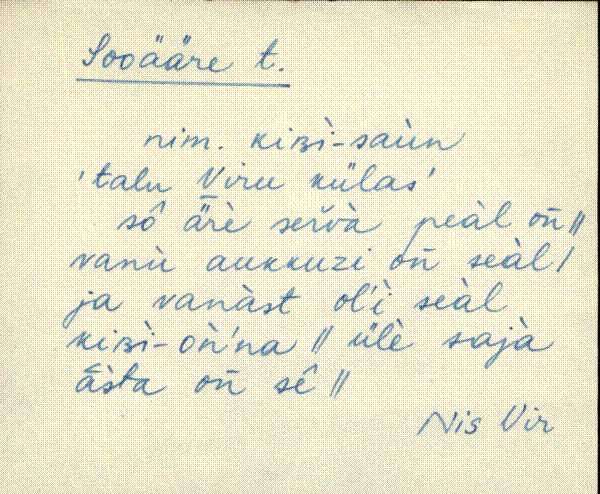 Sooääre t.
nim. kiʙì-saùn
'talu Viru külas'
sô ä̀rè serv̆à peàl on̄ //
vanù aukkuzi on̄ seàl /
ja vanàst ol'ì seàl
kiʙì-on̄'na // ülè sajà
ā̀sta on̄ sê //
Nis Vir